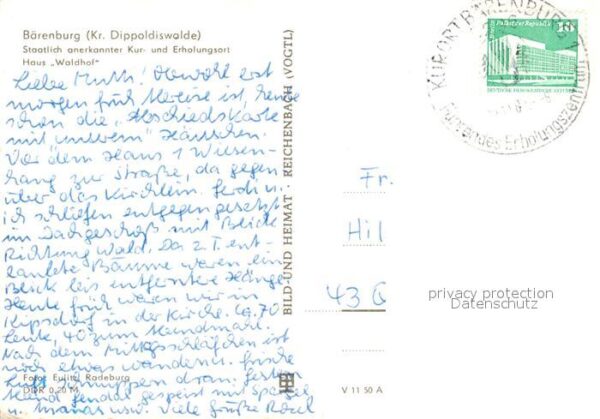 Bärenburg (Kr. Dippoldiswalde)
Staatlich anerkannter Kur- und Erholungsort
Haus „Waldhof"
Liebe Mutti! Obwohl erst
morgen früh Abreise ist, heute
schon die „Abschiedskarte
mit unserem" Häuschen.
Vor dem Haus 1 Wiesen-
hang zur Straße, da gegen
über das Kirchlein. Gerdi u.
ich schliefen entgegengesetzt
im Dachgeschoß mit Blick
Richtung Wald. Da z T. ent-
laubte Bäume waren ein
Blick bis entfernte Hänge
Heute früh waren wir in
Kipsdorf in der Kirche. Ca. 70
Leute, 40 zum Abendmahl.
Nach dem Mittagsschläfchen ist
noch etwas wandern. frische
Luft schnuppern dran. Gestern
Abend gespeist mit
usw. Viele Grüße
Foto: Eulitz, Radeburg
DDR 0,20 M
BILD-UND HEIMAT · REICHENBACH (VOGTL)
V 11 50 A
Fr.
Hil
43 Q
KURORT BÄRENBURG
Erholungszentrum
Palast der Republik
10
privacy protection
Datenschutz